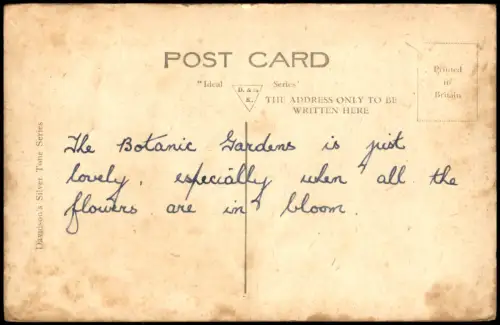 POST CARD
"Ideal Series"
D. & S.
K.
THE ADDRESS ONLY TO BE
WRITTEN HERE
Printed
in
Britain
Davidson's Silver Tone Series
The Botanic Gardens is just
lovely, especially when all the
flowers are in bloom.